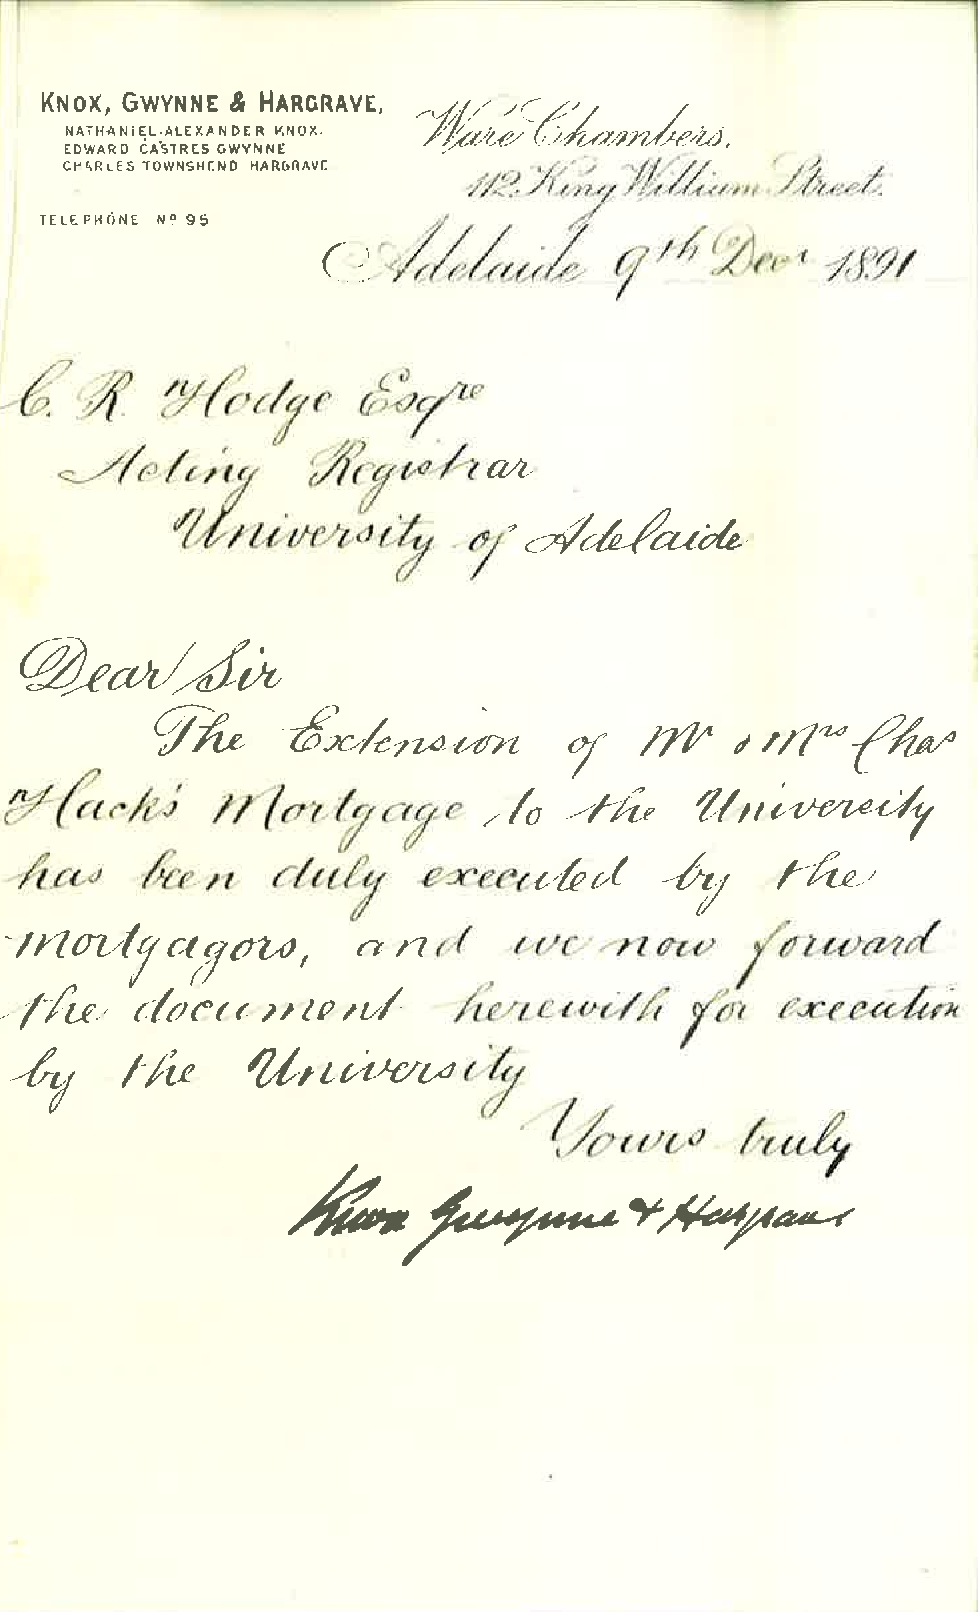 KNOX, GWYNNE & HARGRAVE,
NATHANIEL ALEXANDER KNOX.
EDWARD CASTRES GWYNNE
CHARLES TOWNSHEND HARGRAVE
TELEPHONE Nº 95
Ware Chambers,
112 King William Street.
Adelaide 9th Decr 1891
C. R. Hodge Esqre
Acting Registrar
University of Adelaide
Dear Sir
The Extension of Mr & Mrs Chas
Hack's Mortgage to the University
has been duly executed by the
mortgagors, and we now forward
the document herewith for execution
by the University
Yours truly
Knox Gwynne & Hargrave